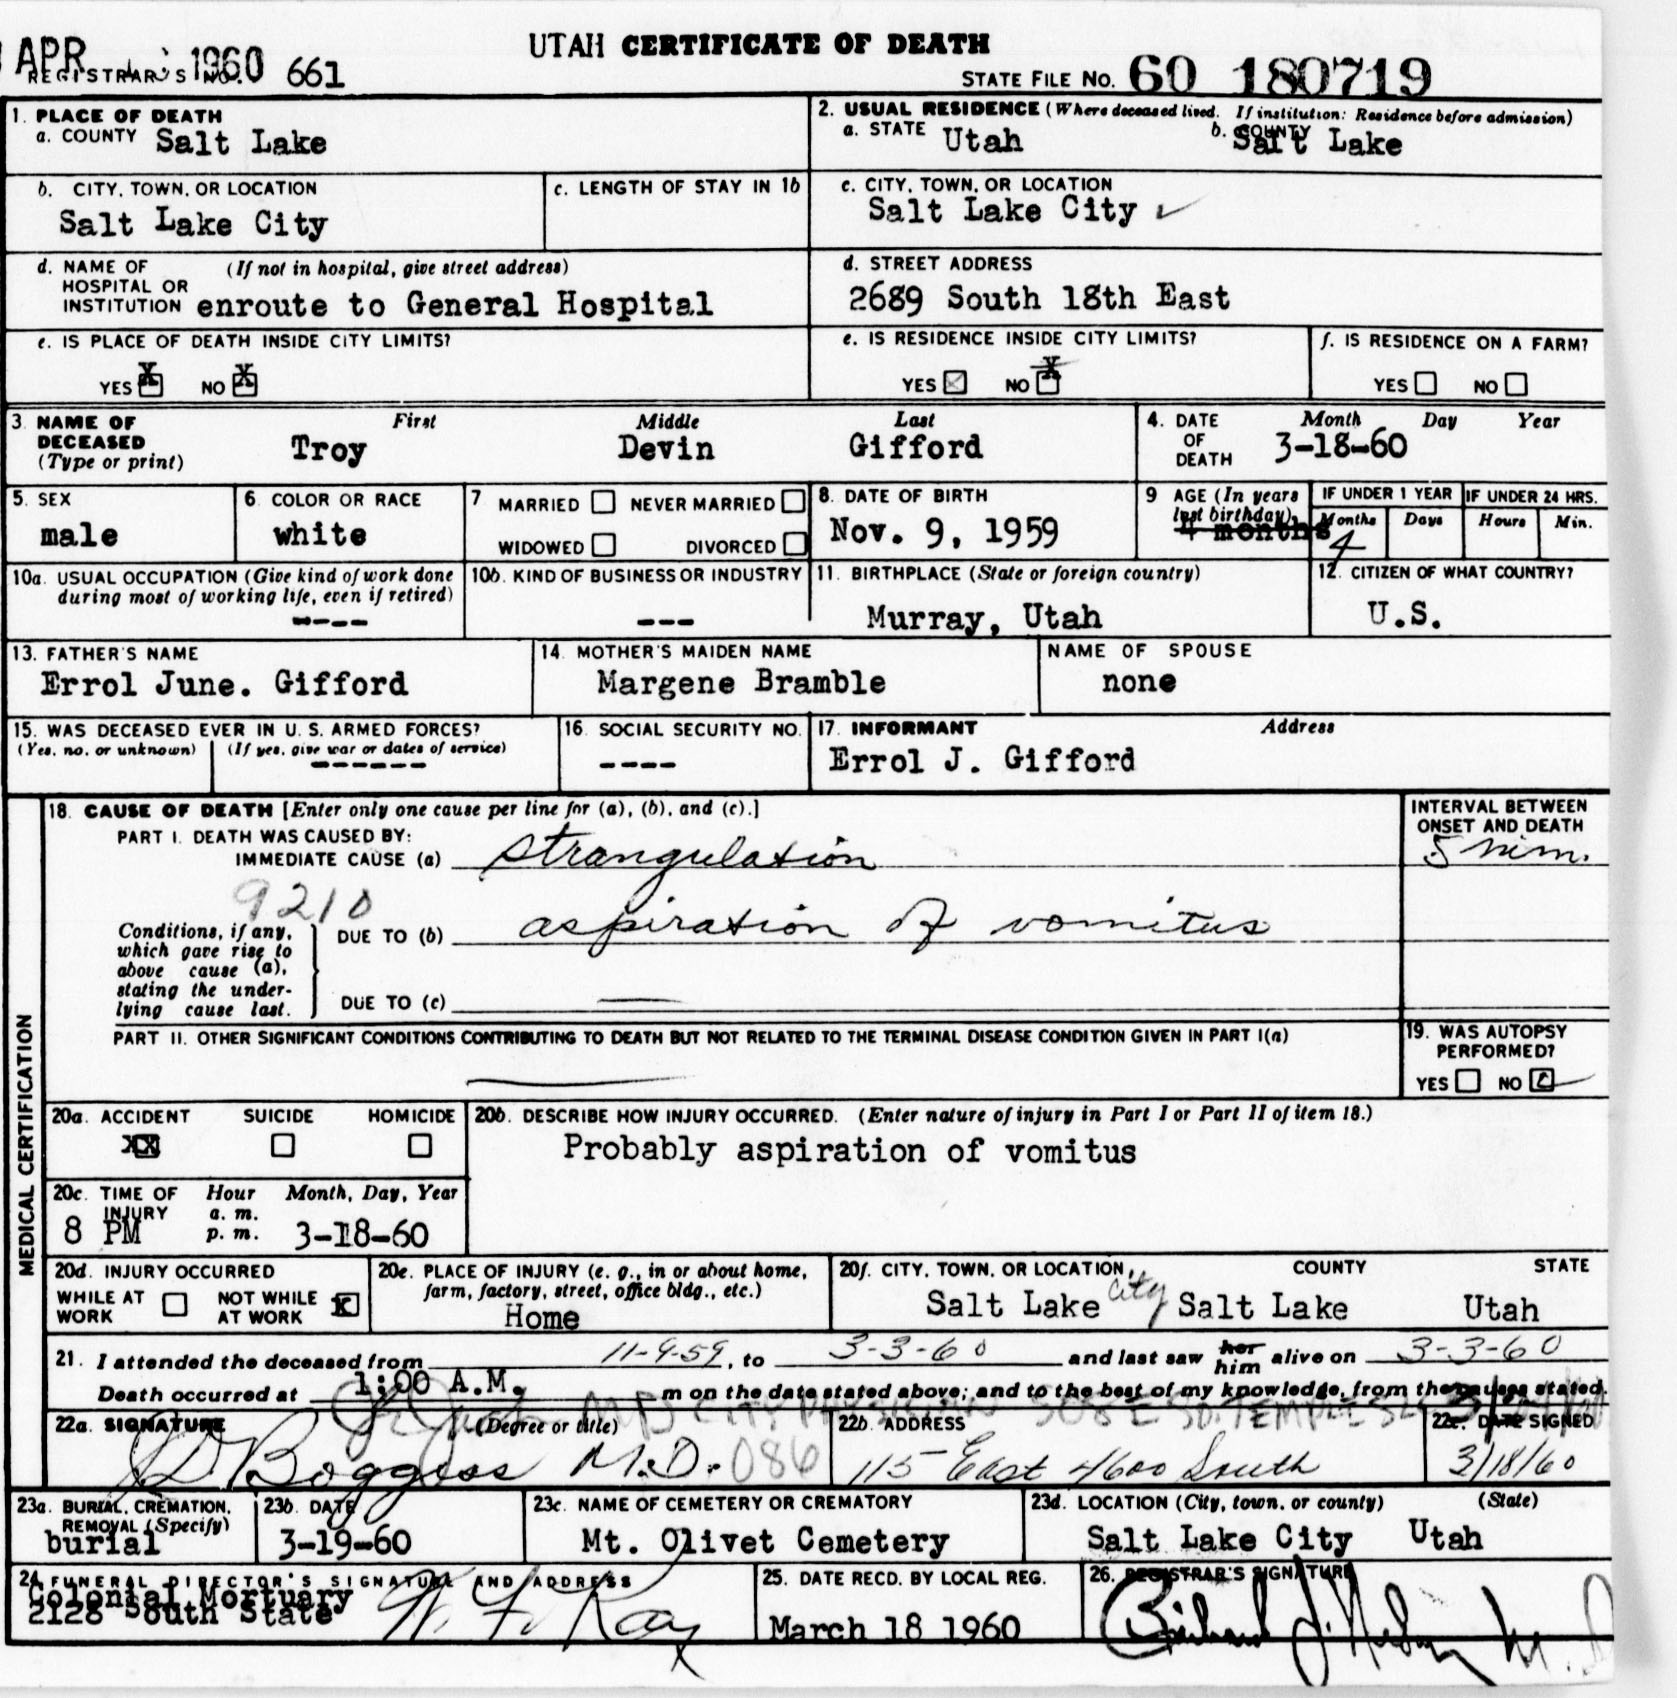 APR 1960
UTAH CERTIFICATE OF DEATH
REGISTRAR'S NO. 661
STATE FILE NO. 60 180719
1. PLACE OF DEATH
a. COUNTY Salt Lake
2. USUAL RESIDENCE (Where deceased lived. If institution: Residence before admission)
a. STATE Utah b. COUNTY Salt Lake
b. CITY, TOWN, OR LOCATION
Salt Lake City
c. LENGTH OF STAY IN 1b
c. CITY, TOWN, OR LOCATION
Salt Lake City ✓
d. NAME OF (If not in hospital, give street address)
HOSPITAL OR
INSTITUTION enroute to General Hospital
d. STREET ADDRESS
2689 South 18th East
e. IS PLACE OF DEATH INSIDE CITY LIMITS?
YES X NO X
e. IS RESIDENCE INSIDE CITY LIMITS?
YES X NO X
f. IS RESIDENCE ON A FARM?
YES NO
3. NAME OF DECEASED (Type or print)
First Middle Last
Troy Devin Gifford
4. DATE OF DEATH
Month Day Year
3-18-60
5. SEX
male
6. COLOR OR RACE
white
7 MARRIED NEVER MARRIED
WIDOWED DIVORCED
8. DATE OF BIRTH
Nov. 9, 1959
9 AGE (In years last birthday)
4 months
IF UNDER 1 YEAR
Months Days
4
IF UNDER 24 HRS.
Hours Min.
10a. USUAL OCCUPATION (Give kind of work done
during most of working life, even if retired)
----
10b. KIND OF BUSINESS OR INDUSTRY
---
11. BIRTHPLACE (State or foreign country)
Murray, Utah
12. CITIZEN OF WHAT COUNTRY?
U.S.
13. FATHER'S NAME
Errol June. Gifford
14. MOTHER'S MAIDEN NAME
Margene Bramble
NAME OF SPOUSE
none
15. WAS DECEASED EVER IN U. S. ARMED FORCES?
(Yes, no, or unknown) (If yes, give war or dates of service)
------
16. SOCIAL SECURITY NO.
----
17. INFORMANT Address
Errol J. Gifford
MEDICAL CERTIFICATION
18. CAUSE OF DEATH [Enter only one cause per line for (a), (b), and (c).]
PART I. DEATH WAS CAUSED BY:
IMMEDIATE CAUSE (a) strangulation
INTERVAL BETWEEN
ONSET AND DEATH
5 min.
9210
Conditions, if any,
which gave rise to
above cause (a),
stating the under-
lying cause last.
DUE TO (b) aspiration of vomitus
DUE TO (c)
PART II. OTHER SIGNIFICANT CONDITIONS CONTRIBUTING TO DEATH BUT NOT RELATED TO THE TERMINAL DISEASE CONDITION GIVEN IN PART I(a)
19. WAS AUTOPSY
PERFORMED?
YES NO
20a. ACCIDENT SUICIDE HOMICIDE
XX
20b. DESCRIBE HOW INJURY OCCURRED. (Enter nature of injury in Part I or Part II of item 18.)
Probably aspiration of vomitus
20c. TIME OF INJURY Hour Month, Day, Year
a. m.
p. m.
8 PM 3-18-60
20d. INJURY OCCURRED
WHILE AT WORK NOT WHILE AT WORK X
20e. PLACE OF INJURY (e. g., in or about home,
farm, factory, street, office bldg., etc.)
Home
20f. CITY, TOWN, OR LOCATION COUNTY STATE
Salt Lake City Salt Lake Utah
21. I attended the deceased from 11-9-59, to 3-3-60 and last saw her him alive on 3-3-60
Death occurred at 1:00 A.M. m on the date stated above; and to the best of my knowledge, from the causes stated.
MD CITY PHYSICIAN 508 E SO. TEMPLE SLC
22a. SIGNATURE (Degree or title)
Boggess M.D. 086
22b. ADDRESS
115 East 4600 South
22c. DATE SIGNED
3/18/60
23a. BURIAL, CREMATION,
REMOVAL (Specify)
burial
23b. DATE
3-19-60
23c. NAME OF CEMETERY OR CREMATORY
Mt. Olivet Cemetery
23d. LOCATION (City, town, or county) (State)
Salt Lake City Utah
24. FUNERAL DIRECTOR'S SIGNATURE AND ADDRESS
Colonial Mortuary
2128 South State
25. DATE RECD. BY LOCAL REG.
March 18 1960
26. REGISTRAR'S SIGNATURE